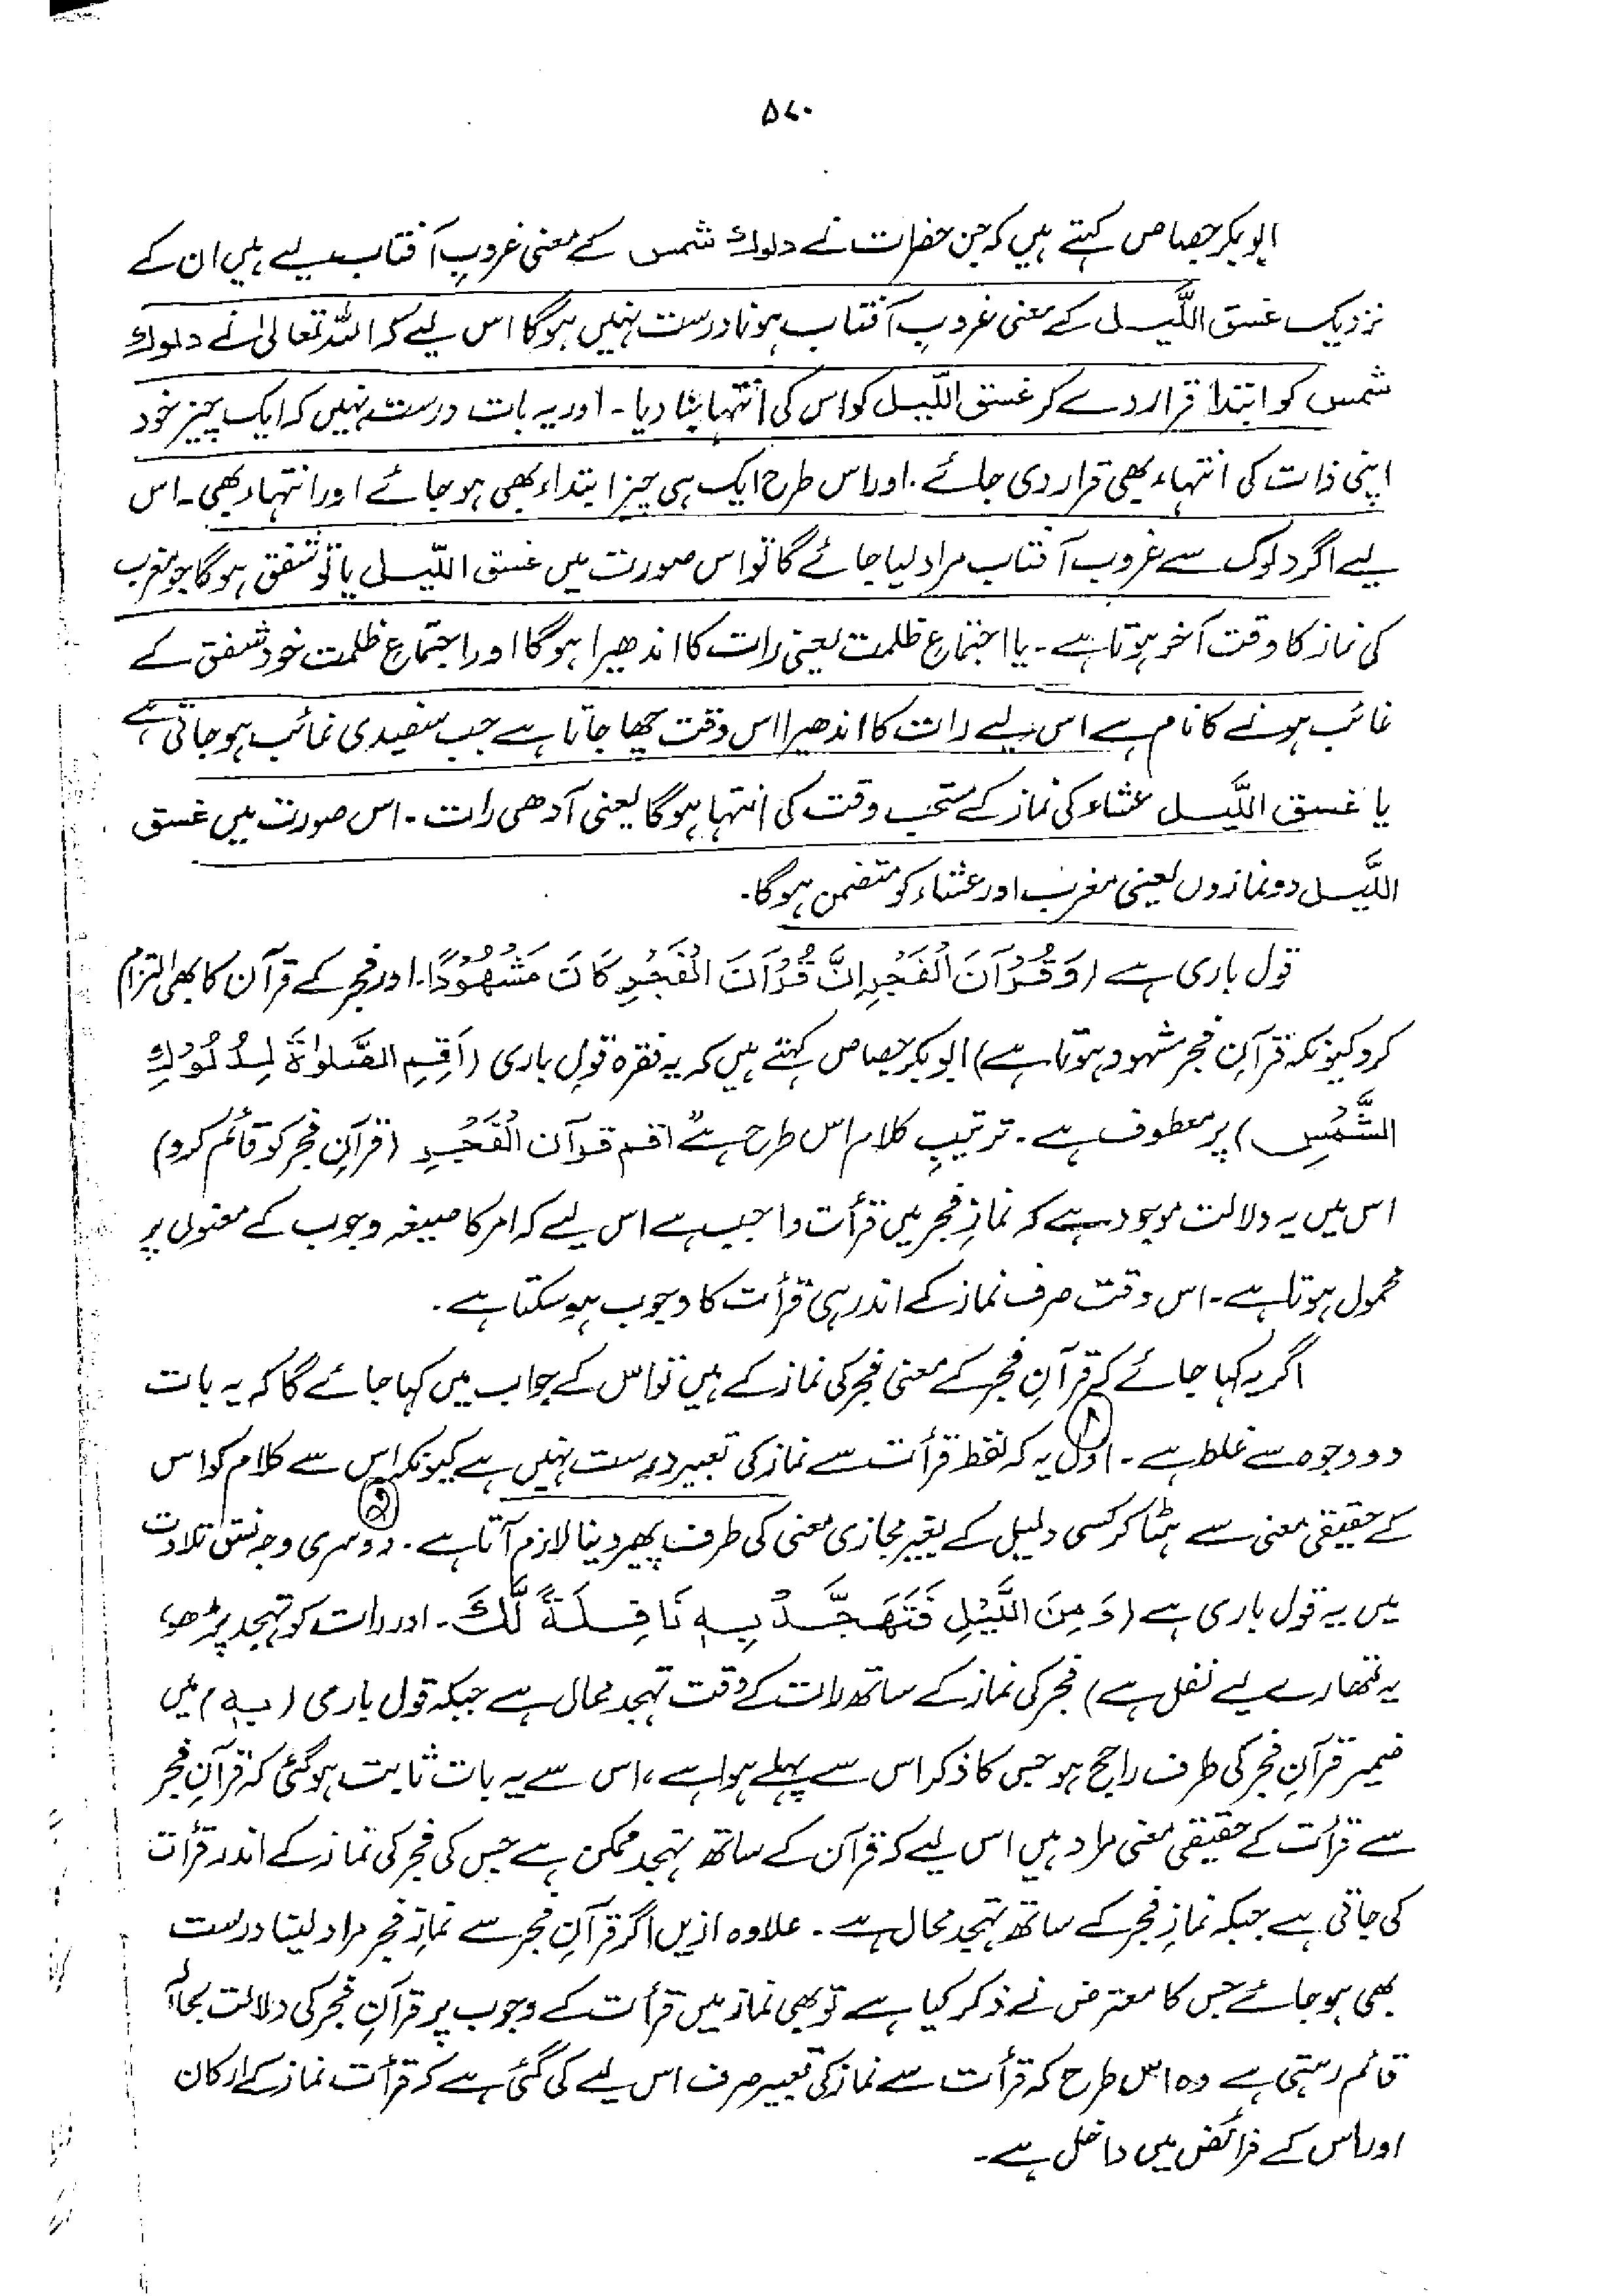 ۵۷۰
ابوبکر جصاص کہتے ہیں کہ جن حضرات نے دلوك شمس کے معنی غروبِ آفتاب لیے ہیں ان کے
نزدیک غسق اللَّیل کے معنی غروبِ آفتاب ہونا درست نہیں ہوگا اس لیے کہ اللہ تعالیٰ نے دلوك
شمس کو ابتدا قرار دے کر غسق اللّیل کو اس کی انتہا بنا دیا۔ اور یہ بات درست نہیں کہ ایک چیز خود
اپنی ذات کی انتہاء بھی قرار دی جائے۔ اور اس طرح ایک ہی چیز ابتداء بھی ہو جائے اور انتہاء بھی۔ اس
لیے اگر دلوک سے غروب آفتاب مراد لیا جائے گا تو اس صورت میں غسق اللّیل یا تو شفق ہوگا جو مغرب
کی نماز کا وقت آخر ہوتا ہے۔ یا اجتماعِ ظلمت یعنی رات کا اندھیرا ہوگا اور اجتماعِ ظلمت خود شفق کے
غائب ہونے کا نام ہے اس لیے رات کا اندھیرا اس وقت چھا جاتا ہے جب سفیدی غائب ہو جاتی ہے
یا غسق اللَّیل عشاء کی نماز کے مستحب وقت کی انتہا ہوگا یعنی آدھی رات۔ اس صورت میں غسق
اللَّیل دو نمازوں یعنی مغرب اور عشاء کو متضمن ہوگا۔
قول باری ہے (وَقُرْآنَ الْفَجْرِ اِنَّ قُرْآنَ الْفَجْرِ كَانَ مَشْهُوْدًا۔ اور فجر کے قرآن کا بھی التزام
کرو کیونکہ قرآنِ فجر مشہود ہوتا ہے) ابوبکر جصاص کہتے ہیں کہ یہ فقرہ قولِ باری (اَقِمِ الصَّلوٰةَ لِدُلُوْكِ
الشَّمْسِ) پر معطوف ہے۔ ترتیبِ کلام اس طرح ہے "اقم قرآن الْفَجْرِ (قرآنِ فجر کو قائم کرو)
اس میں یہ دلالت موجود ہے کہ نمازِ فجر میں قرأت واجب ہے اس لیے کہ امر کا صیغہ وجوب کے معنوں پر
محمول ہوتا ہے۔ اس وقت صرف نماز کے اندر ہی قرأت کا وجوب ہو سکتا ہے۔
اگر یہ کہا جائے کہ قرآنِ فجر کے معنی فجر کی نماز کے ہیں تو اس کے جواب میں کہا جائے گا کہ یہ بات
دو وجوہ سے غلط ہے۔ ۱ اول یہ کہ لفظ قرأت سے نماز کی تعبیر درست نہیں ہے کیونکہ اس سے کلام کو اس
کے حقیقی معنی سے ہٹا کر کسی دلیل کے بغیر مجازی معنی کی طرف پھیر دینا لازم آتا ہے۔ ۲ دوسری وجہ نسق تلاوت
میں یہ قول باری ہے (وَمِنَ اللَّيْلِ فَتَهَجَّدْ بِهٖ نَافِلَةً لَّكَ۔ اور رات کو تہجد پڑھو،
یہ تمھارے لیے نفل ہے) فجر کی نماز کے ساتھ رات کے وقت تہجد محال ہے جبکہ قول باری (بِهٖ) میں
ضمیر قرآنِ فجر کی طرف راجح ہو جس کا ذکر اس سے پہلے ہوا ہے، اس سے یہ بات ثابت ہوگئی کہ قرآنِ فجر
سے قرأت کے حقیقی معنی مراد ہیں اس لیے کہ قرآن کے ساتھ تہجد ممکن ہے جس کی فجر کی نماز کے اندر قرأت
کی جاتی ہے جبکہ نمازِ فجر کے ساتھ تہجد محال ہے۔ علاوہ ازیں اگر قرآنِ فجر سے نمازِ فجر مراد لینا درست
بھی ہو جائے جس کا معترض نے ذکر کیا ہے تو بھی نماز میں قرأت کے وجوب پر قرآنِ فجر کی دلالت بحالہٖ
قائم رہتی ہے وہ اس طرح کہ قرأت سے نماز کی تعبیر صرف اس لیے کی گئی ہے کہ قرأت نماز کے ارکان
اور اس کے فرائض میں داخل ہے۔